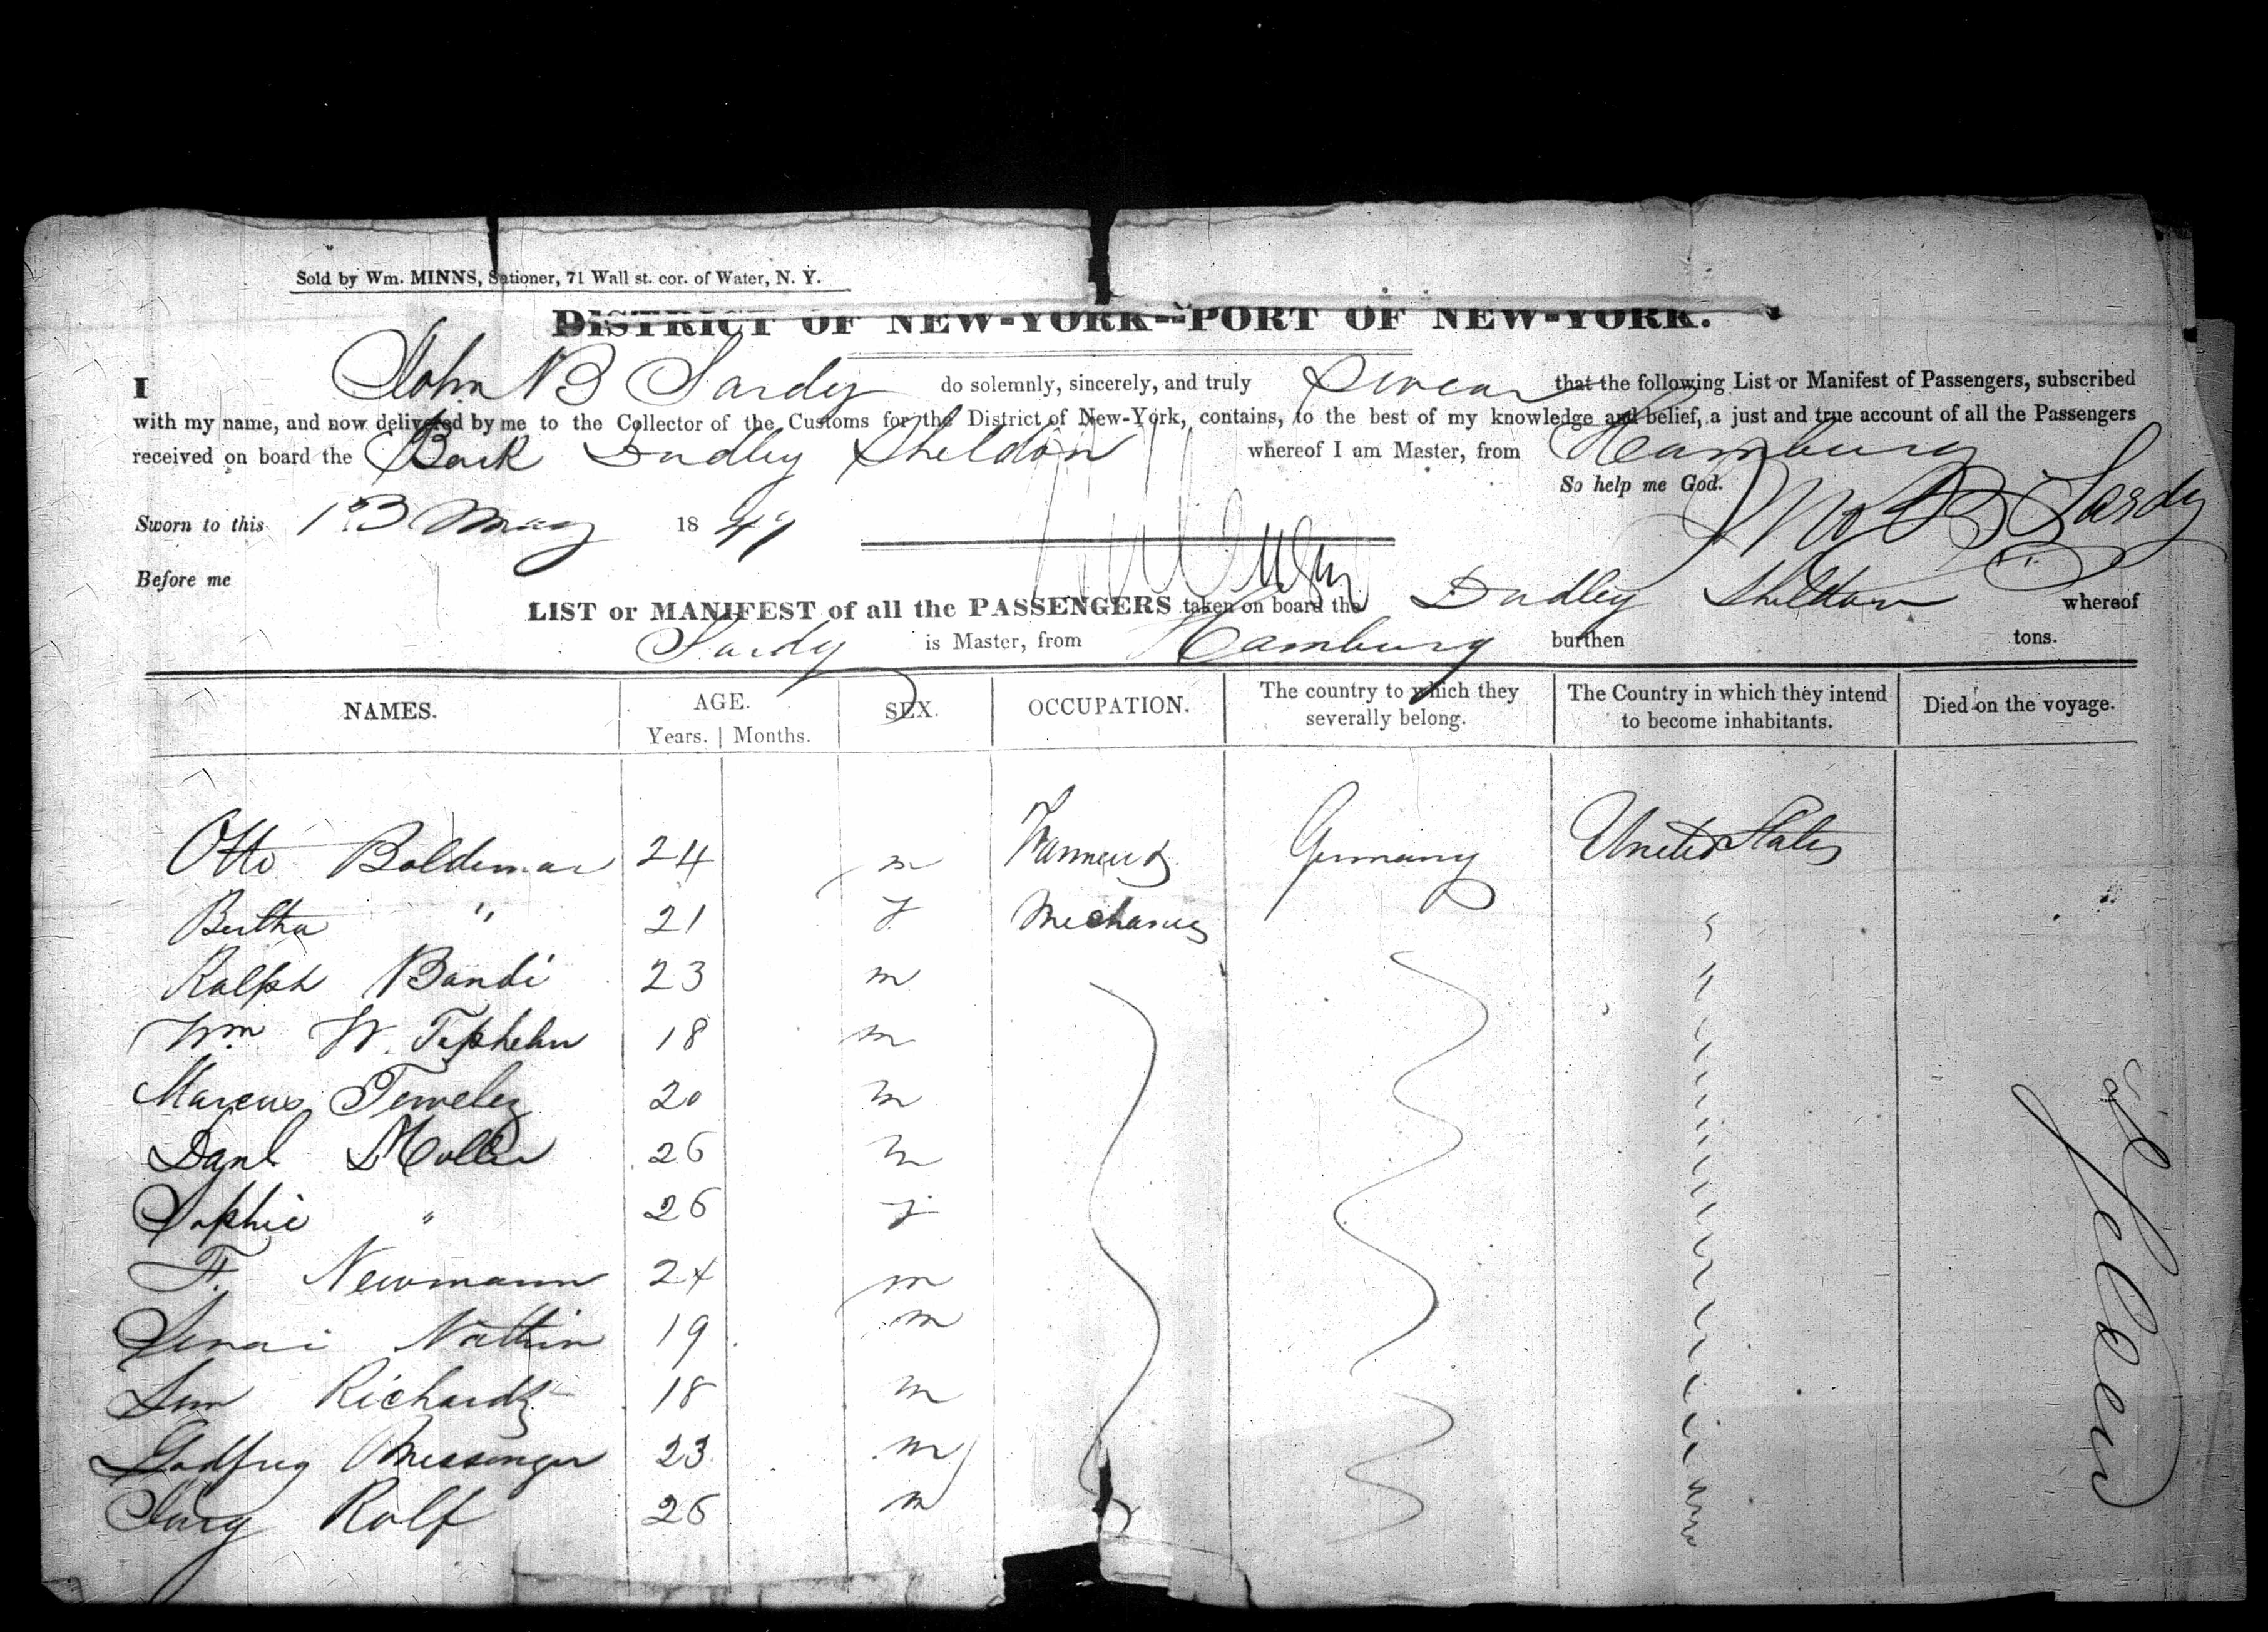 Sold by Wm. MINNS, Sationer, 71 Wall st. cor. of Water, N. Y.
DISTRICT OF NEW-YORK--PORT OF NEW-YORK.
I John B Sardy do solemnly, sincerely, and truly swear that the following List or Manifest of Passengers, subscribed
with my name, and now delivered by me to the Collector of the Customs for the District of New-York, contains, to the best of my knowledge and belief, a just and true account of all the Passengers
received on board the Bark Dudley Sheldon whereof I am Master, from Hamburg
So help me God.
Jno B Sardy
Sworn to this 183 May 1849
Before me
LIST or MANIFEST of all the PASSENGERS taken on board the Dudley Sheldon whereof
Sardy is Master, from Hamburg burthen tons.
NAMES. AGE. Years. Months. SEX. OCCUPATION. The country to which they severally belong. The Country in which they intend to become inhabitants. Died on the voyage.
Otto Boldemar 24 m Germany United States
Bertha " 21 f Mechanics
Ralph Bandi 23 m
Wm W. 18 m
Marcus 20 m
Danl Moller 26 m
Sophie " 26 f
F. Newmann 24 m
Nathin 19 m
Richards 18 m
Godfrey Messenger 23 m
Rolf 26 m